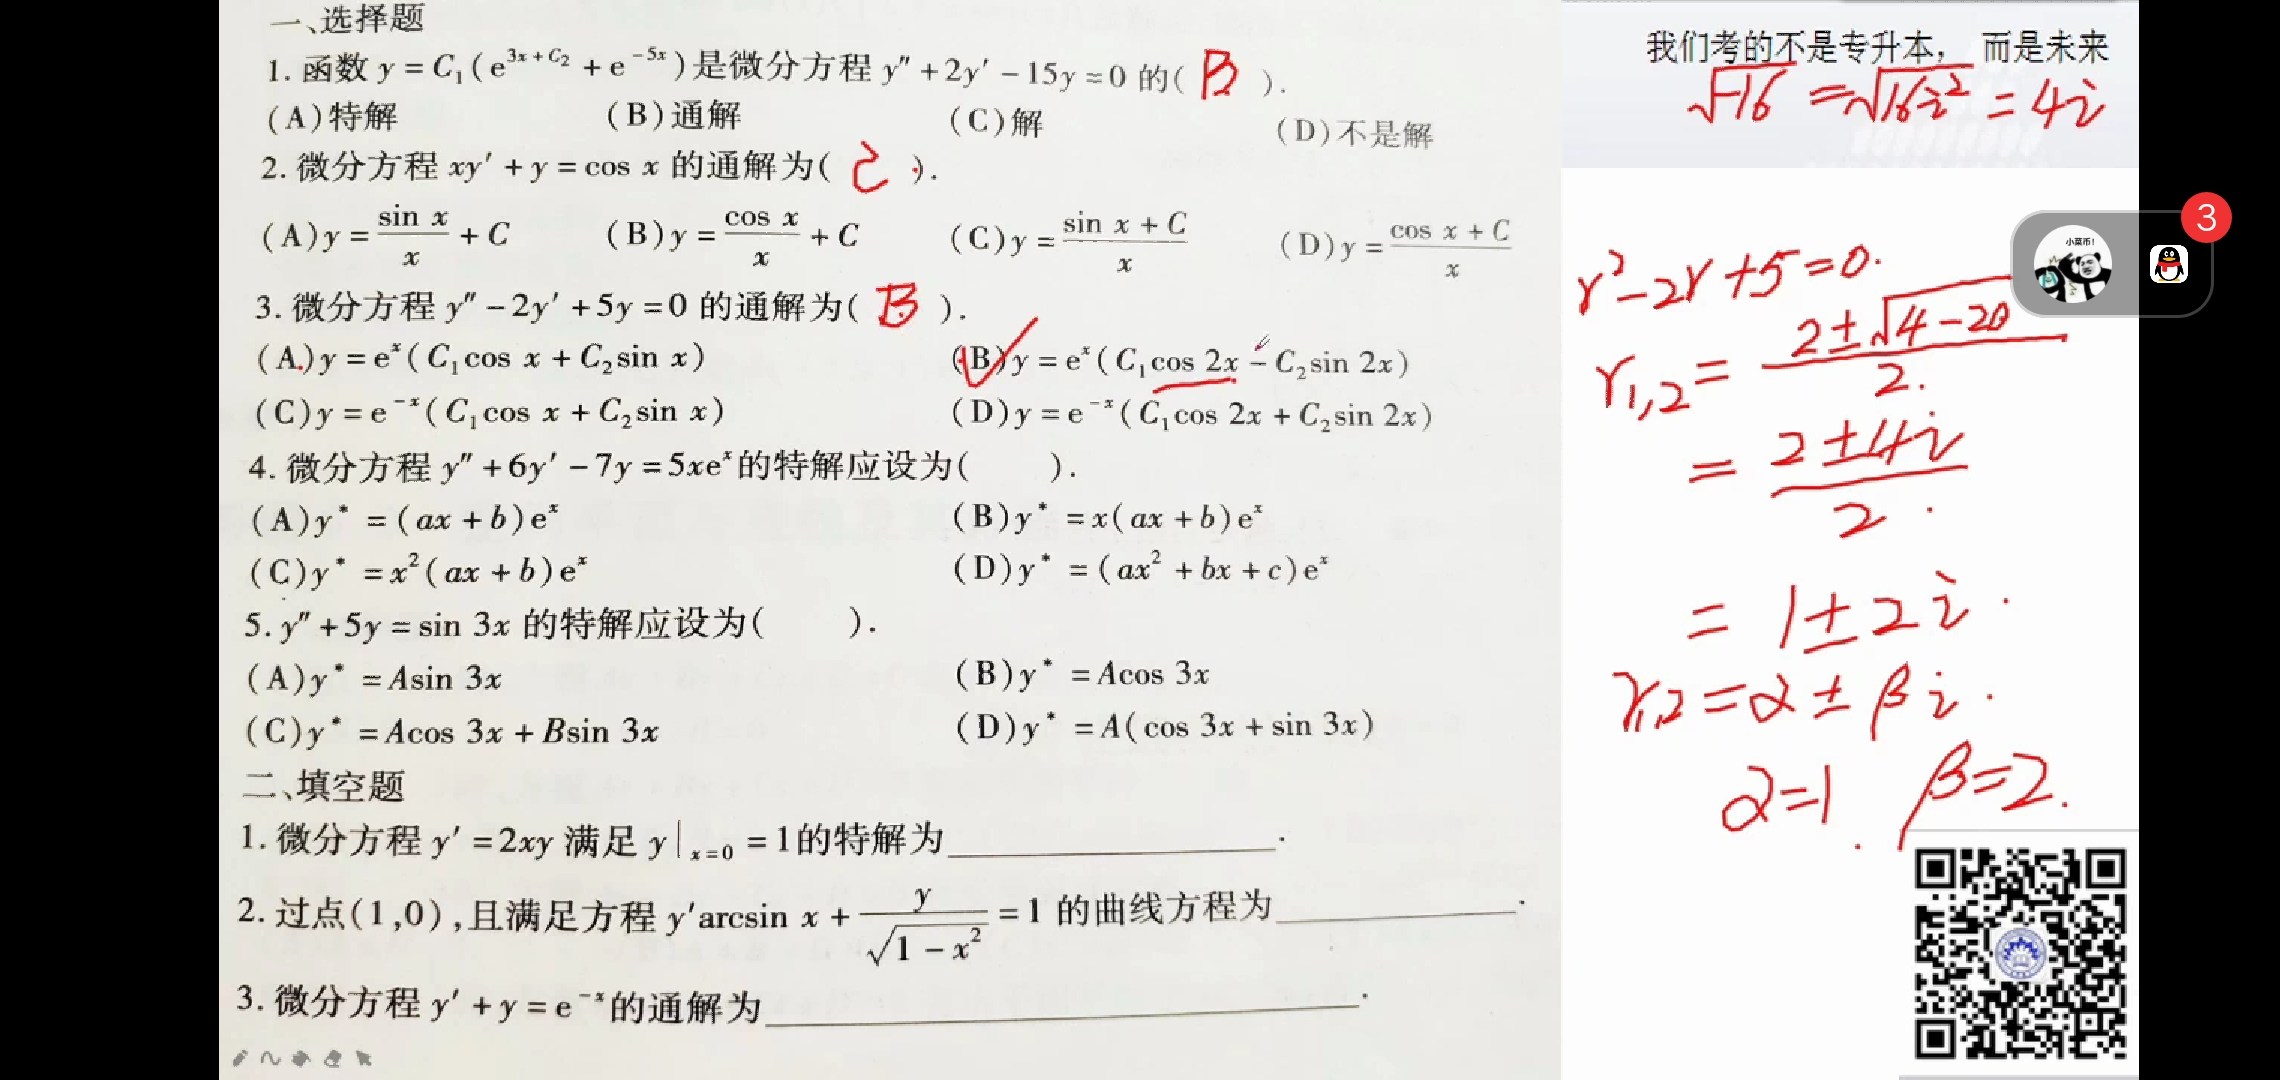 一、选择题
1. 函数 y = C₁(e^(3x+C₂) + e^(-5x)) 是微分方程 y″ + 2y′ - 15y = 0 的( B ).
(A)特解 (B)通解 (C)解 (D)不是解
2. 微分方程 xy′ + y = cos x 的通解为( C ).
(A) y = sin x/x + C (B) y = cos x/x + C (C) y = (sin x + C)/x (D) y = (cos x + C)/x
3. 微分方程 y″ - 2y′ + 5y = 0 的通解为( B ).
(A) y = e^x(C₁cos x + C₂sin x) (B) y = e^x(C₁cos 2x - C₂sin 2x)
(C) y = e^(-x)(C₁cos x + C₂sin x) (D) y = e^(-x)(C₁cos 2x + C₂sin 2x)
4. 微分方程 y″ + 6y′ - 7y = 5xe^x 的特解应设为( ).
(A) y* = (ax + b)e^x (B) y* = x(ax + b)e^x
(C) y* = x²(ax + b)e^x (D) y* = (ax² + bx + c)e^x
5. y″ + 5y = sin 3x 的特解应设为( ).
(A) y* = Asin 3x (B) y* = Acos 3x
(C) y* = Acos 3x + Bsin 3x (D) y* = A(cos 3x + sin 3x)
二、填空题
1. 微分方程 y′ = 2xy 满足 y|ₓ₌₀ = 1的特解为________.
2. 过点(1,0),且满足方程 y′arcsin x + y/√(1 - x²) = 1 的曲线方程为________.
3. 微分方程 y′ + y = e^(-x) 的通解为________.
我们考的不是专升本， 而是未来
√-16 = √16i² = 4i
3
小菜币!
r² - 2r + 5 = 0.
r₁,₂ = (2 ± √4 - 20)/2.
= (2 ± 4i)/2.
= 1 ± 2i.
r₁,₂ = α ± βi.
α = 1. β = 2.